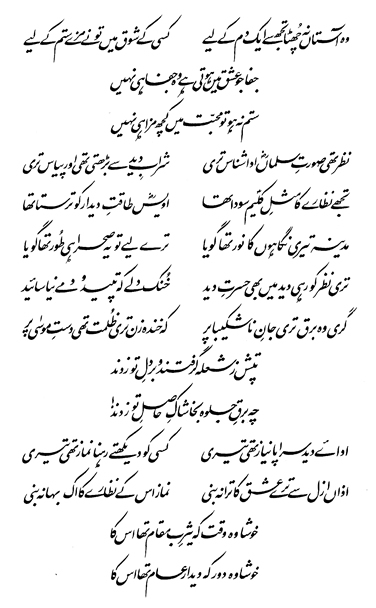 وہ آستاں نہ چھٹا تجھ سے ایک دم کے لیے کسی کے شوق میں تو نے مزے ستم کے لیے
جفا جو عشق میں ہوتی ہے وہ جفا ہی نہیں
ستم نہ ہو تو محبت میں کچھ مزا ہی نہیں
نظر تھی صورتِ سلماںؓ ادا شناس تری شرابِ دید سے بڑھتی تھی اور پیاس تری
تجھے نظارے کا مثلِ کلیمؑ سودا تھا اویسؓ طاقتِ دیدار کو ترستا تھا
مدینہ تیری نگاہوں کا نور تھا گویا ترے لیے تو یہ صحرا ہی طور تھا گویا
تری نظر کو رہی دید میں بھی حسرتِ دید خنک دلے کہ تپید و دمے نیاسائید
گری وہ برق تری جانِ ناشکیبا پر کہ خندہ زن تری ظلمت تھی دستِ موسیٰؑ پر
تپش ز شعلہ گرفتند و بر دلِ تو زدند
چہ برقِ جلوہ بخاشاکِ حاصلِ تو زدند!
اداے دید سراپا نیاز تھی تیری کسی کو دیکھتے رہنا نماز تھی تیری
اذاں ازل سے ترے عشق کا ترانہ بنی نماز اس کے نظارے کا اک بہانہ بنی
خوشا وہ وقت کہ یثرب مقام تھا اس کا
خوشا وہ دور کہ دیدار عام تھا اس کا